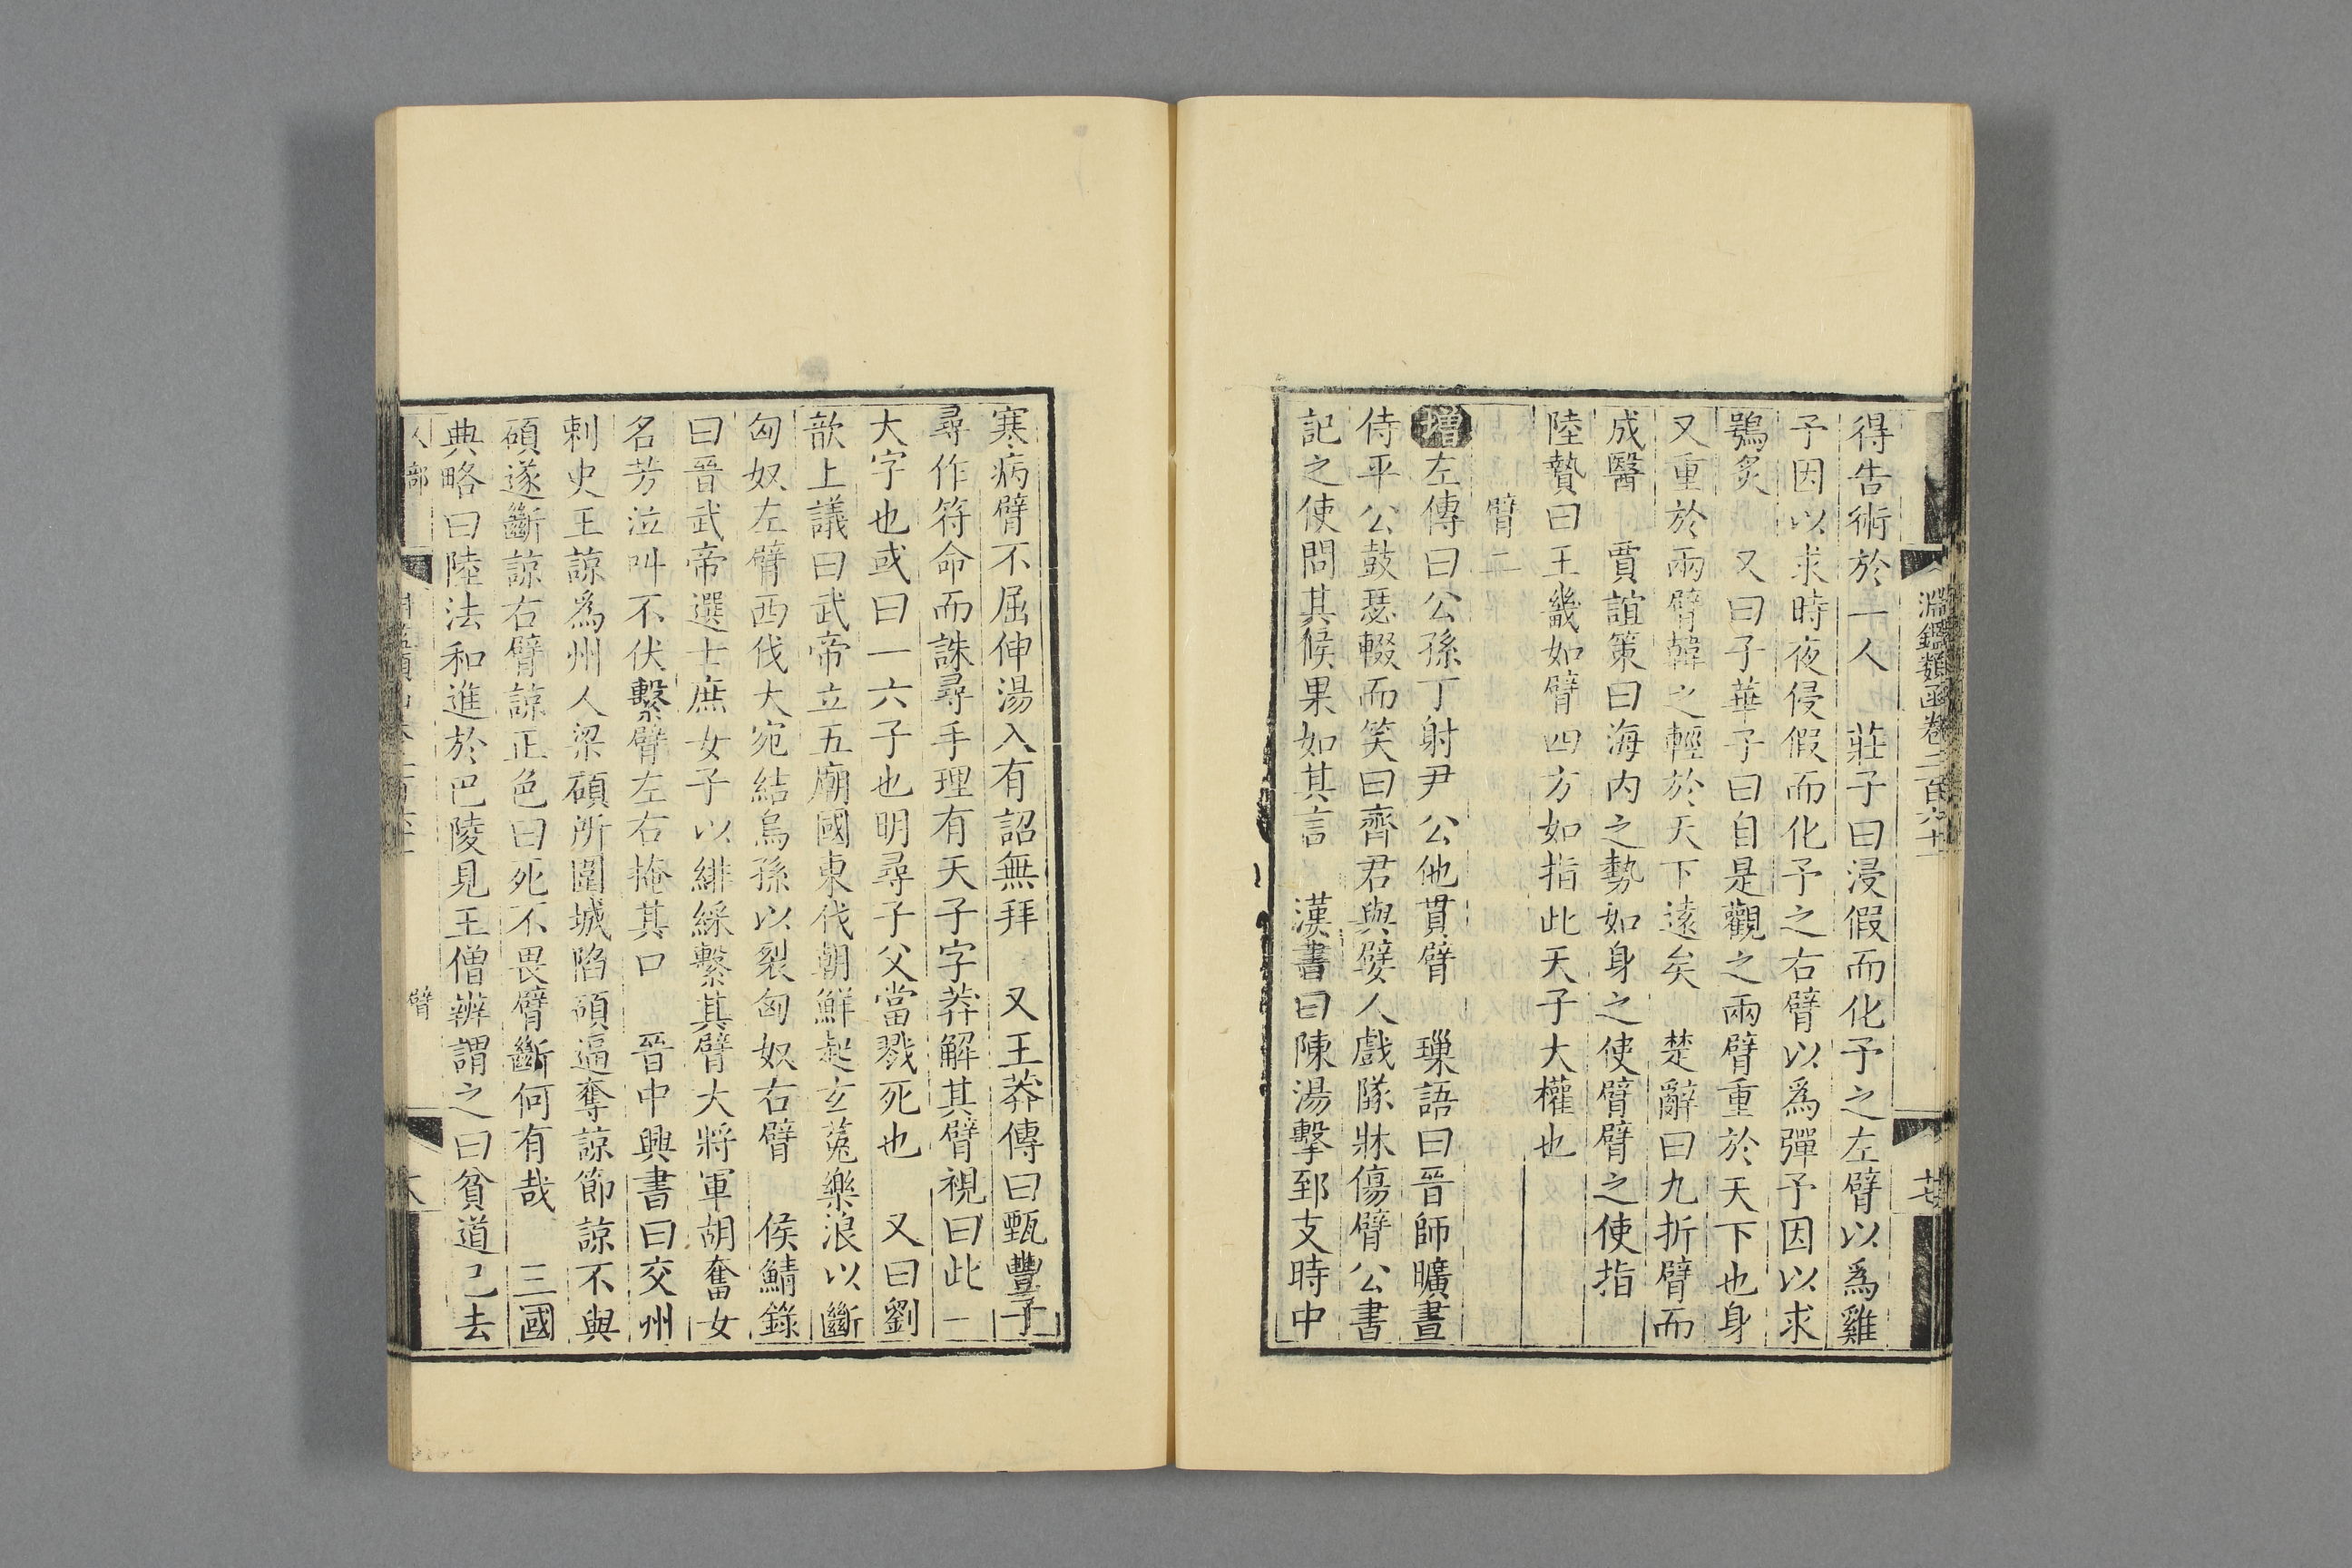 淵鑑類函卷二百六十
得告術於一人　莊子曰浸假而化予之左臂以爲雞
予因以求時夜侵假而化予之右臂以爲彈予因以求
鴞炙　又曰子華子曰自是觀之兩臂重於天下也身
又重於兩臂韓之輕於天下遠矣　楚辭曰九折臂而
成醫　賈誼策曰海內之勢如身之使臂臂之使指
陸贄曰王畿如臂四方如指此天子大權也
臂二
增左傳曰公孫丁射尹公他貫臂　璅語曰晉師曠晝
侍平公鼓瑟輟而笑曰齊君與嬖人戲墜牀傷臂公書
記之使問其候果如其言　漢書曰陳湯擊郅支時中
寒病臂不屈伸湯入有詔無拜　又王莽傳曰甄豐子
尋作符命而誅尋手理有天子字莽解其臂視曰此一
大字也或曰一六子也明尋子父當戮死也　又曰劉
歆上議曰武帝立五廟國東伐朝鮮起玄菟樂浪以斷
匈奴左臂西伐大宛結烏孫以裂匈奴右臂　侯鯖錄
曰晉武帝選士庶女子以緋綵繫其臂大將軍胡奮女
名芳泣叫不伏繫臂左右掩其口　晉中興書曰交州
刺史王諒爲州人梁碩所圍城陷碩逼奪諒節諒不與
碩遂斷諒右臂諒正色曰死不畏臂斷何有哉　三國
典略曰陸法和進於巴陵見王僧辨謂之曰貧道已去
人部
臂